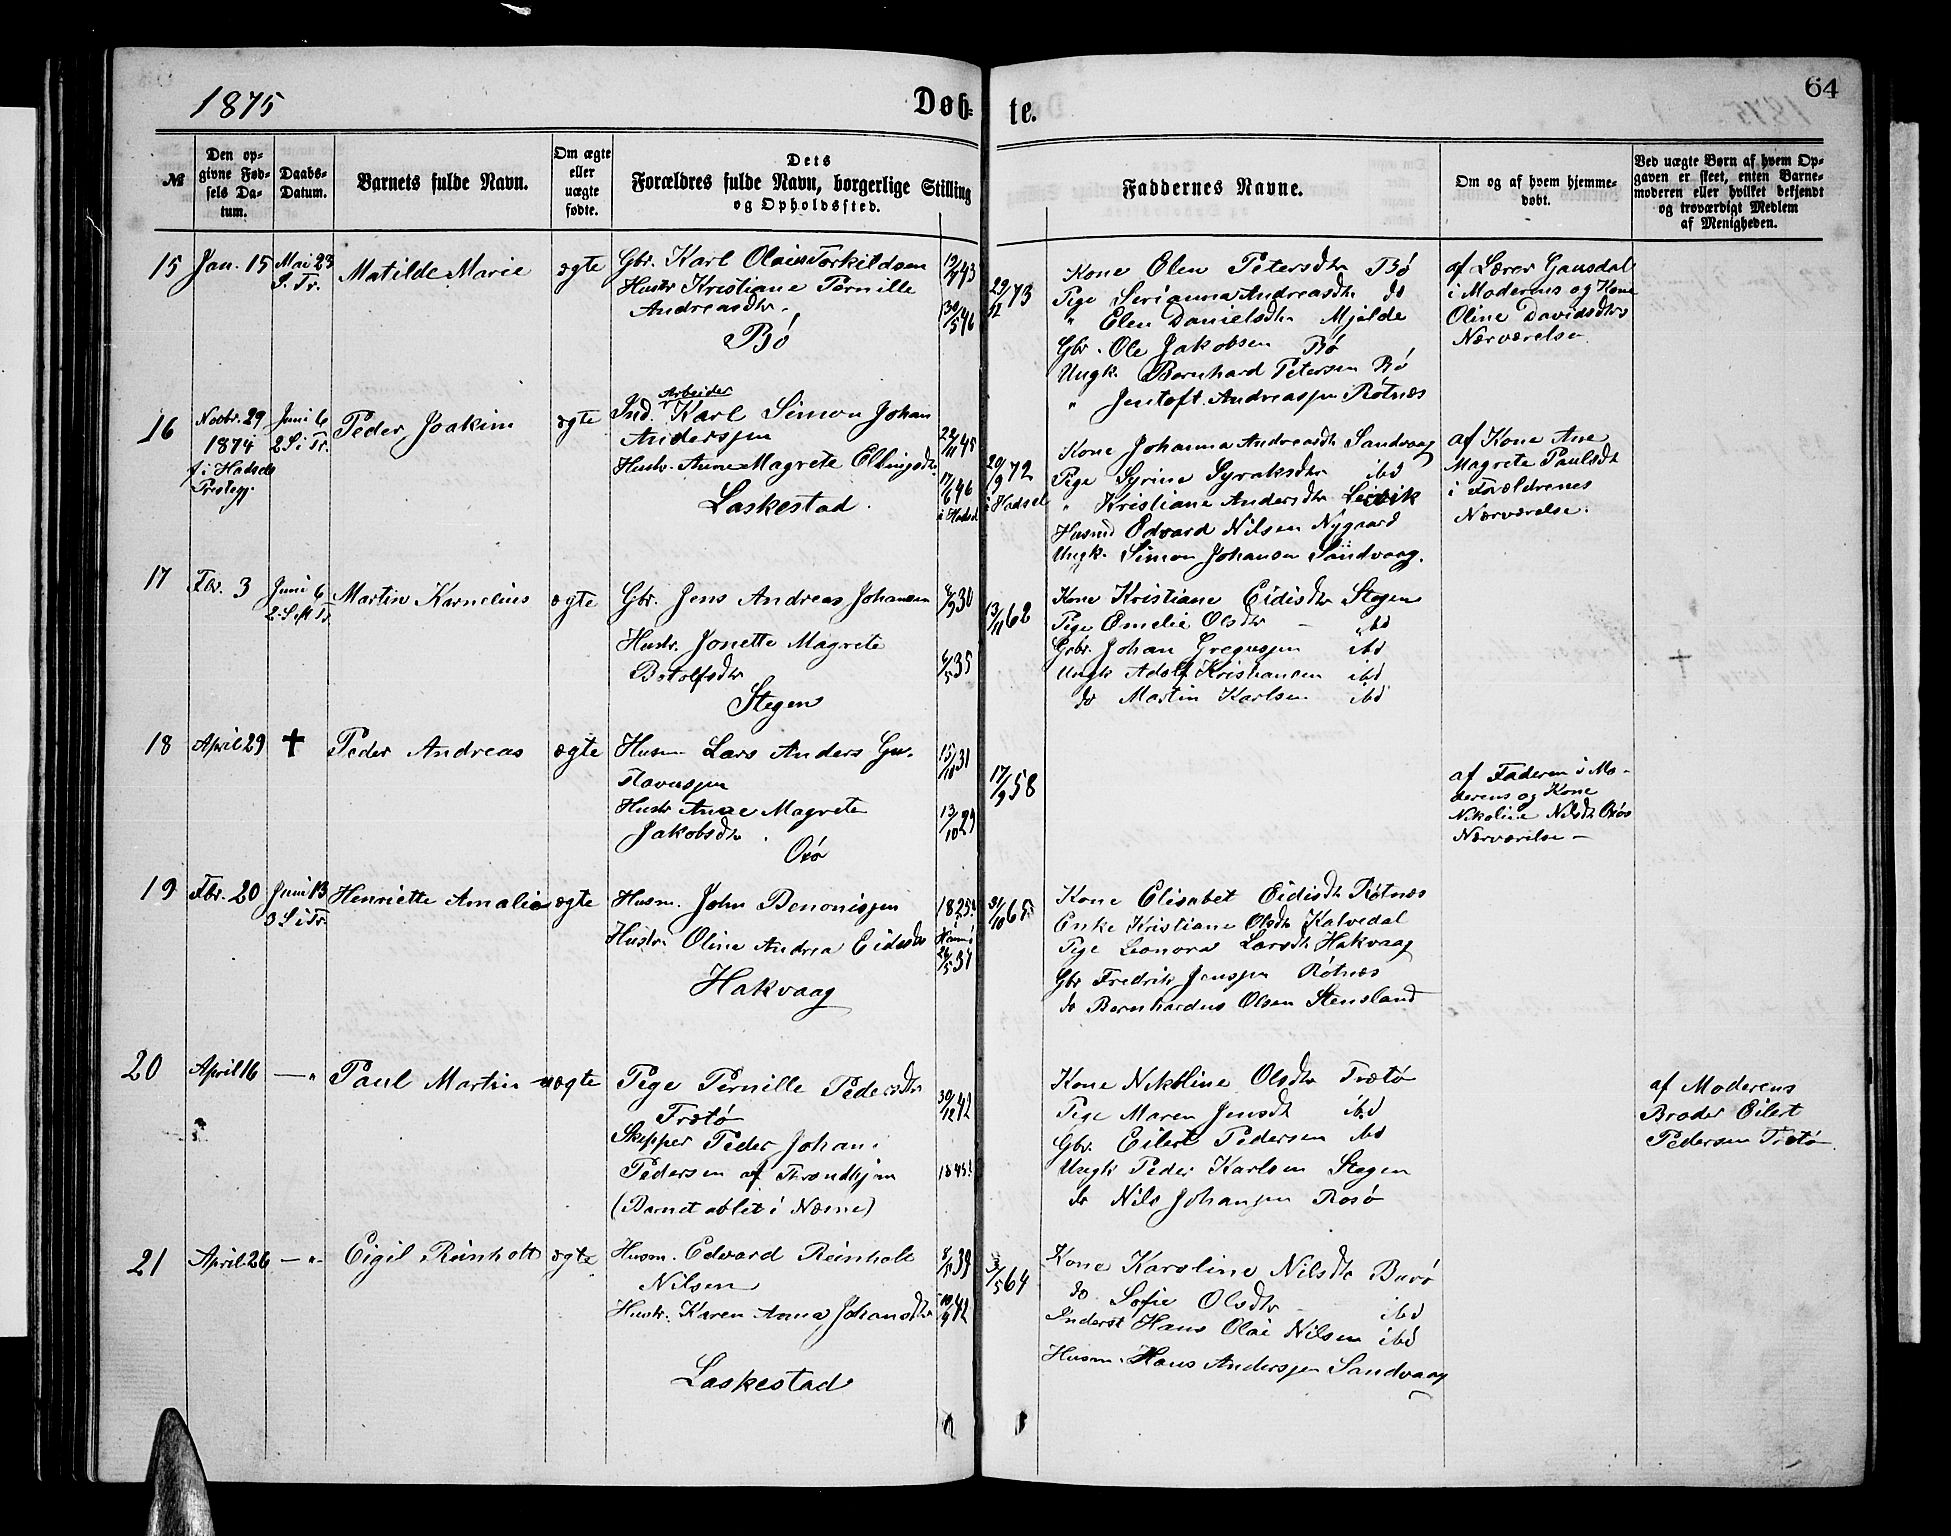 1875
Døb-
te.
64
№
Den op-
givne Fød-
sels Da-
tum.
Daabs-
Datum.
Barnets fulde Navn.
Om ægte
eller
uægte
fødte.
Dets
Forældres fulde Navn, borgerlige Stilling
og Opholdssted.
Faddernes Navne.
Om og af hvem hjemme-
døbt.
Ved uægte Børn af hvem Op-
gaven er skeet, enten Barne-
moderen eller hvilket bekjendt
og troværdigt Medlem
af Menigheden.
15
Jan. 15
Mai 23
S. Tr.
Matilde Marie
ægte
Gbr. Karl Olaus Torkildsen
Hustr Kristiane Pernille
Andreasdtr.
Bö
12/7 43
30/5 46
29/12 73
Kone Elen Petersdtr Bö
Pige Serianna Andreasdtr do
" Elen Danielsdtr Mjelde
Gbr. Ole Jakobsen Bö
Ungk. Bernhard Petersen Bö
" Jentoft Andreassen Røtnæs
af Lærer Gausdal
i Moderens og Kone
Oline Davidsdtrs
Nærværelse
16
Novbr. 29
1874
f. i Hadsel
Prestegj.
Juni 6
2 S i Tr.
Peder Joakim
ægte
Arbeider
Ind. Karl Simon Johan
Anderssen
Hustr. Anne Magrete Ellingsdtr
Laskestad.
22/11 45
17/6 46
i Hadsel
20/9 72
i Hadsel
Kone Johanna Andreasdtr Sandvaag
Pige Syrine Syraksdtr ibd
" Kristiane Andersdtr Leirvik
Husmd Edvard Nilsen Nygaard
Ungk. Simon Johansen Sandvaag.
af Kone Ane
Magrete Paulsdtr
i Forældrenes
Nærværelse.
17
Fbr. 3
Juni 6
2 S eft Tr.
Martin Kornelius
ægte
Gbr. Jens Andreas Johansen
Hustr. Jonette Magrete
Botolfsdtr
Stegen
6/9 30
6/5 35
13/11 62
Kone Kristiane Eidisdtr Stegen
Pige Emelie Olsdtr — ibd
Gbr. Johan Gregussen ibd
Ungk Adolf Kristiansen ibd
do Martin Karlsen ibd
18
April 29
✝
Peder Andreas
ægte
Husm Lars Anders Gu-
stavussen
Hustr Anne Magrete
Jakobsdtr.
Oxö
15/10 31
13/10 29
17/9 58
af Faderen i Mo-
derens og Kone
Nikoline Nilsdtr Oxös
Nærværelse —
19
Fbr. 20
Juni 13
3 S i Tr.
Henriette Amalie
ægte
Husm. John Benonissen
Hustr. Oline Andrea Eidisdtr
Hakvaag
1825
Hamö
26/5 37
31/10 65
Kone Elisabet Eidisdtr Røtnæs
Enke Kristiane Olsdtr Kalvedal
Pige Leonora Larsdtr Hakvaag
Gbr Fredrik Jenssen Røtnæs
do Bernhardus Olsen Stensland
20
April 16
— "
Paul Martin
uægte
Pige Pernille Pedersdtr
Trætö
Skipper Peder Johan
Pedersen af Trondhjem
(Barnet ablet i Næsne)
30/12 42
1845?
Kone Nikoline Olsdtr Trætö
Pige Maren Jensdtr ibd
Gbr. Eilert Pedersen ibd
Ungk Peder Karlsen Stegen
do Nils Johansen Rosö
af Moderens
Broder Eilert
Pedersen Trætö
21
April 26
— "
Eigil Reinholt
ægte
Husm. Edvard Reinholt
Nilsen
Hustr. Karen Anna Johansdtr
Laskestad
39
42
64
Kone Karoline Nilsdtr Burö
do Sofie Olsdtr — ibd
Inderst Hans Olai Nilsen ibd
Husm. Hans Anderssen Sandvaag